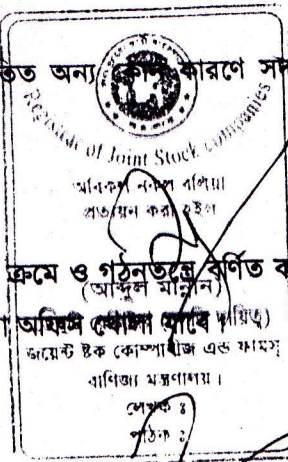 অন্য কোন কারণে
Registrar of Joint Stock Companies
অবিকল নকল বলিয়া
প্রত্যয়ন করা হইল
ক্রমে ও গঠনতন্ত্রে বর্ণিত
(আব্দুল মান্নান)
অফিস খোলা যাবে।
জয়েন্ট ষ্টক কোম্পানীজ এন্ড ফার্মস্
বাণিজ্য মন্ত্রণালয়।
লেখক ঃ
পাঠক ঃ